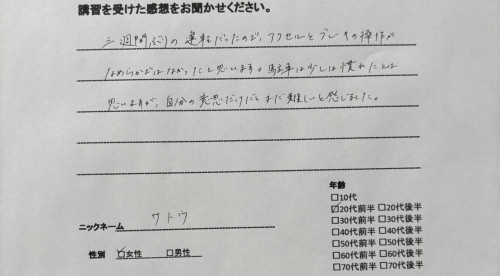 講習を受けた感想をお聞かせください。
三週間ぶりの運転だったので、アクセルとブレーキの操作が
なめらかではなかったと思います。駐車は少しは慣れたとは
思いますが、自分の意思だけだとまだ難しいと感じました。
年齢
□10代
☑20代前半 □20代後半
□30代前半 □30代後半
□40代前半 □40代後半
□50代前半 □50代後半
□60代前半 □60代後半
□70代前半 □70代後半
ニックネーム サトウ
性別 ☑女性 □男性